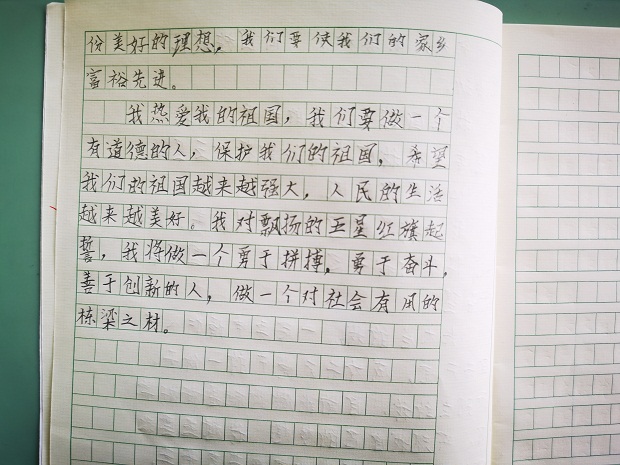 份美好的理想，我们要使我们的家乡
富裕先进。
我热爱我的祖国，我们要做一个
有道德的人，保护我们的祖国，希望
我们的祖国越来越强大，人民的生活
越来越美好。我对飘扬的五星红旗起
誓，我将做一个勇于拼搏，勇于奋斗，
善于创新的人，做一个对社会有用的
栋梁之材。